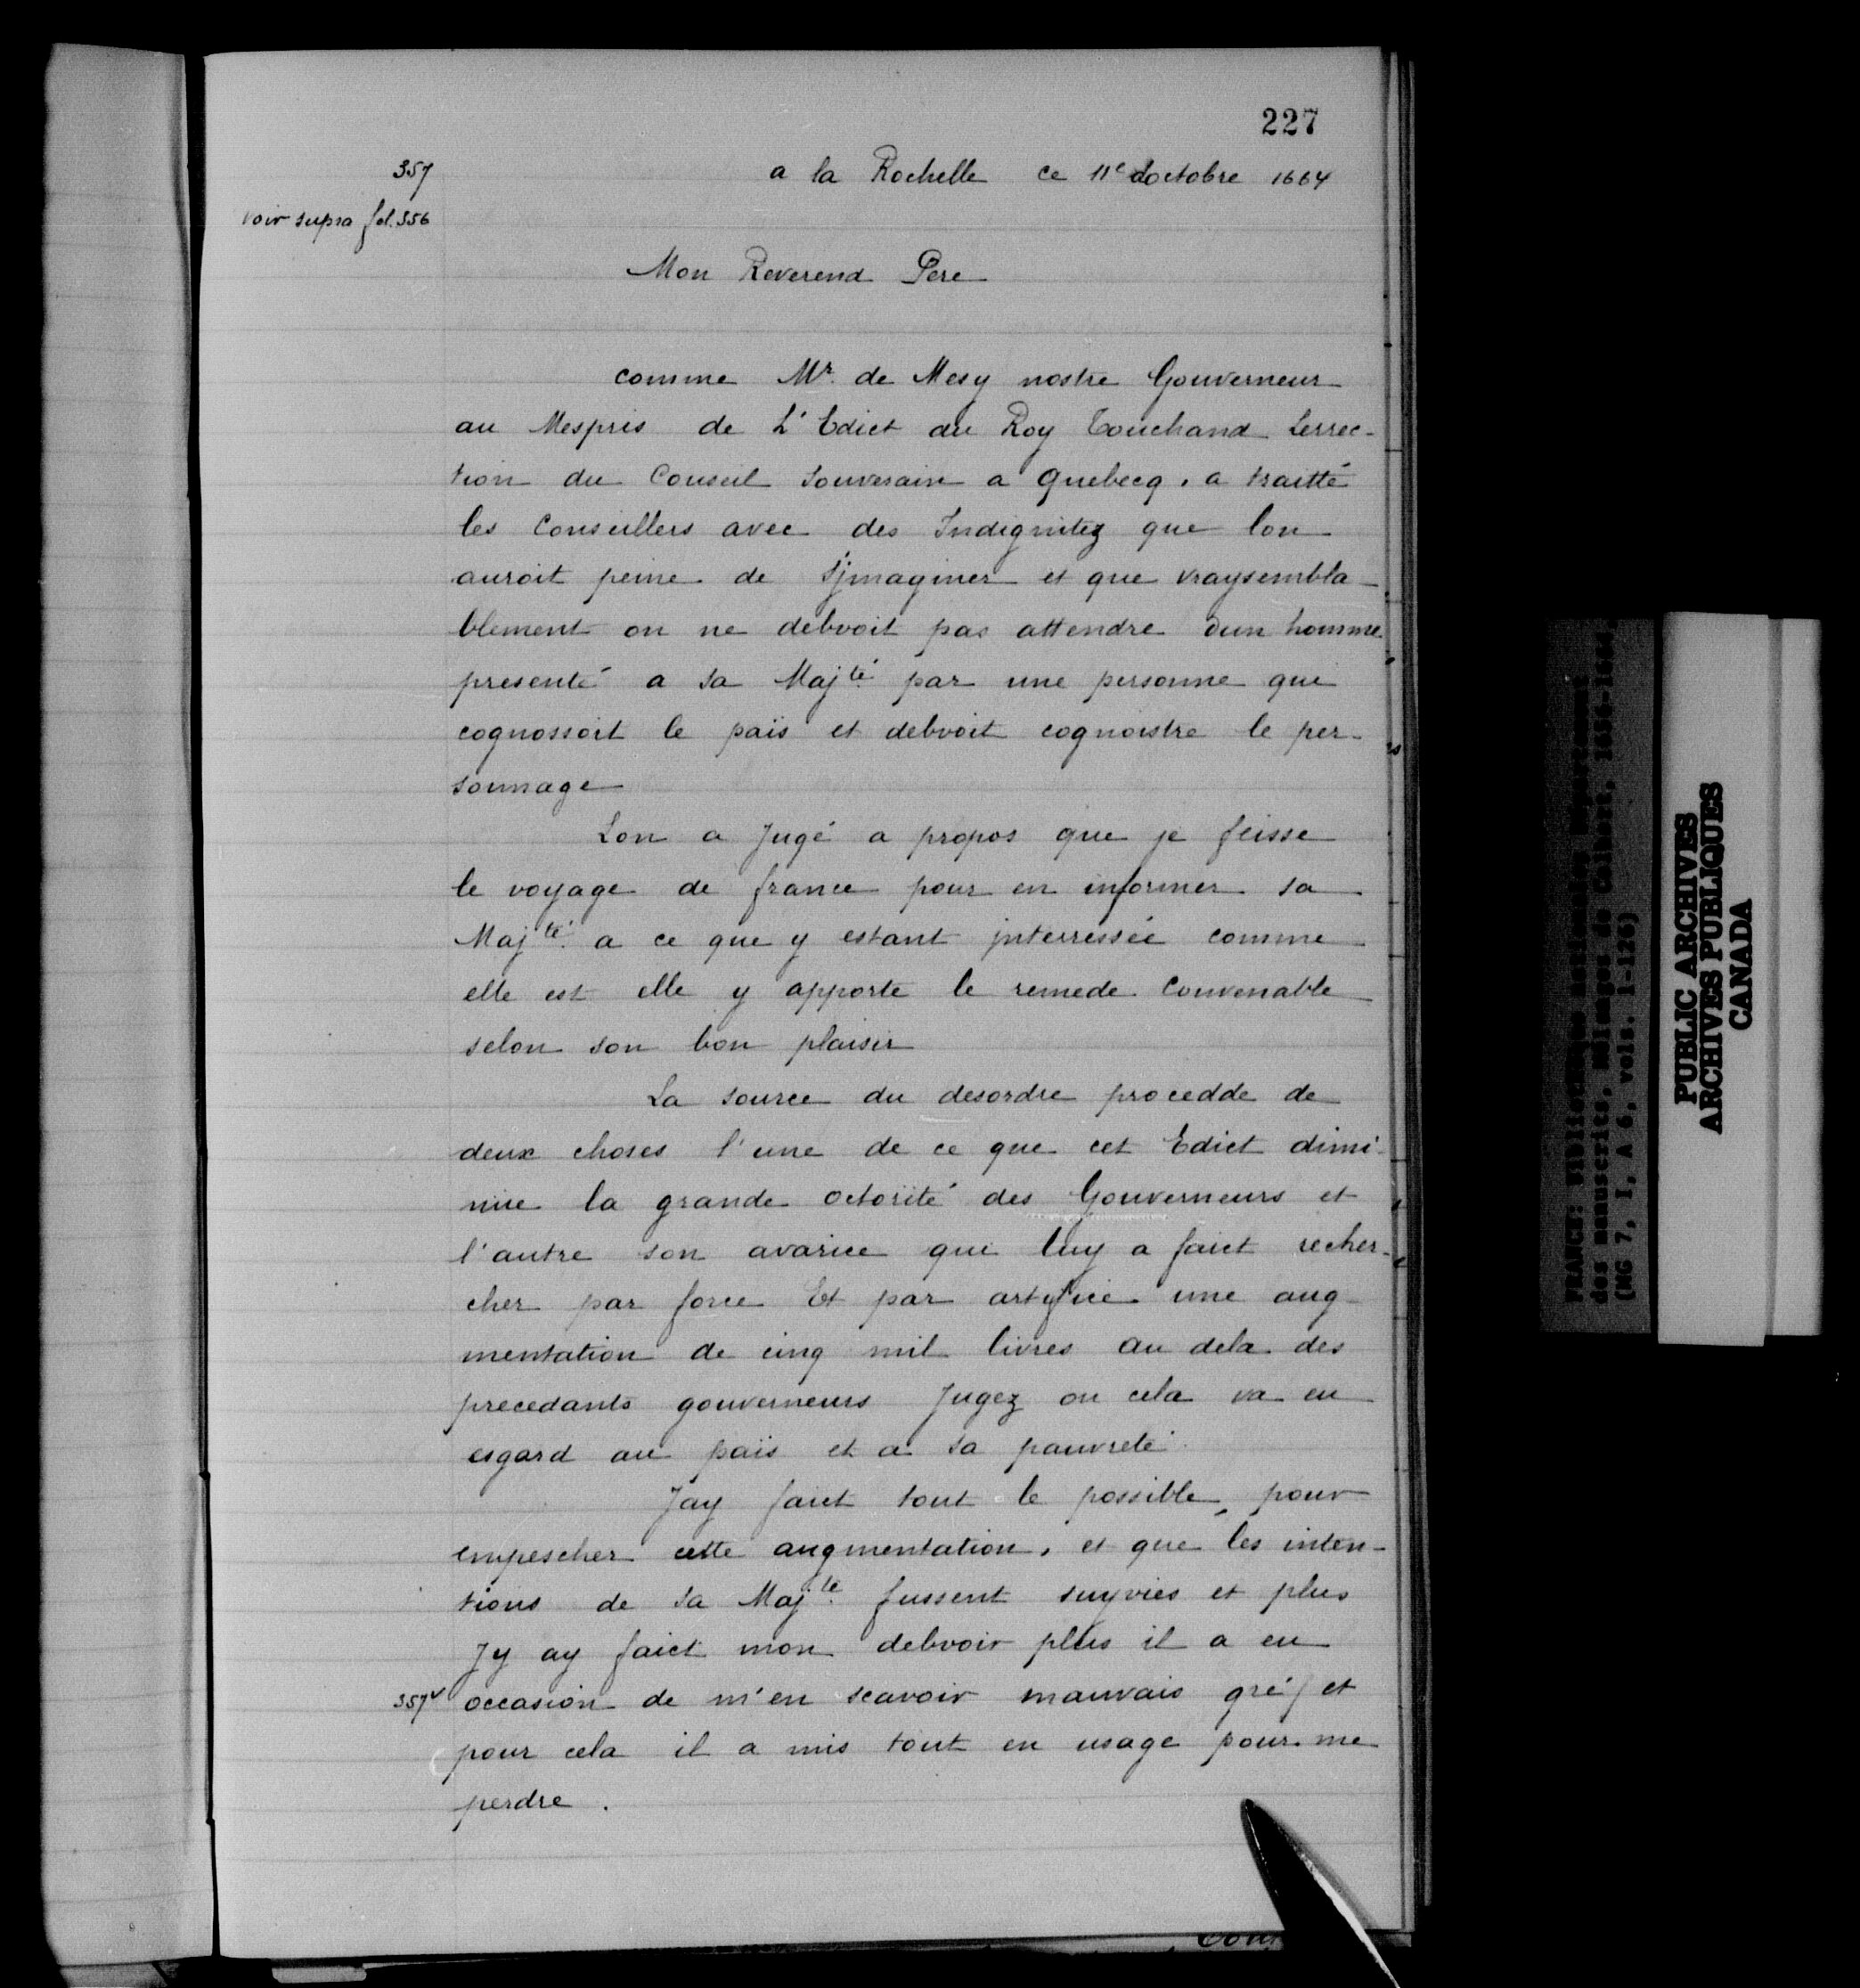 227
357
a la Rochelle ce 11e doctobre 1664
voir supra fol. 356
Mon Reverend Pere
comme Mr. de Mesy nostre Gouverneur
au Mespris de L'Edict du Roy Touchand Lerrec-
tion du Conseil Souverain a Quebecq. a traitté
les Conseillers avec des Indignitez que lon
auroit peine de s'jmaginer et que vraysembla-
blement on ne debvoit pas attendre dun homme
presenté a sa Majté par une personne qui
cognossoit le païs et debvoit cognoistre le per-
sonnage
Lon a Jugé a propos que je feisse
le voyage de france pour en informer sa
Majté. a ce que y estant jnterressée comme
elle est elle y apporte le remede convenable
selon son bon plaisir
La source du desordre procedde de
deux choses l'une de ce que cet Edict dimi-
nue la grande octorité des Gouverneurs et
l'autre son avarice qui luy a faict recher-
cher par force Et par artyfice une aug-
mentation de cinq mil livres au dela des
precedants gouverneurs Jugez ou cela va eu
esgard au païs et a sa pauvreté.
Jay faict tout le possible pour
empescher cette augmentation, et que les inten-
tions de sa Majté. fussent suyvies et plus
Jy ay faict mon debvoir plus il a eu
357v occasion de m'en scavoir mauvais gré / et
pour cela il a mis tout en usage pour me
perdre.
PUBLIC ARCHIVES
ARCHIVES PUBLIQUES
CANADA
FRANCE: Bibliothèque nationale, Département
des manuscrits, Mélanges de Colbert,
(MG 7, I, A 6, vols. 1-126)